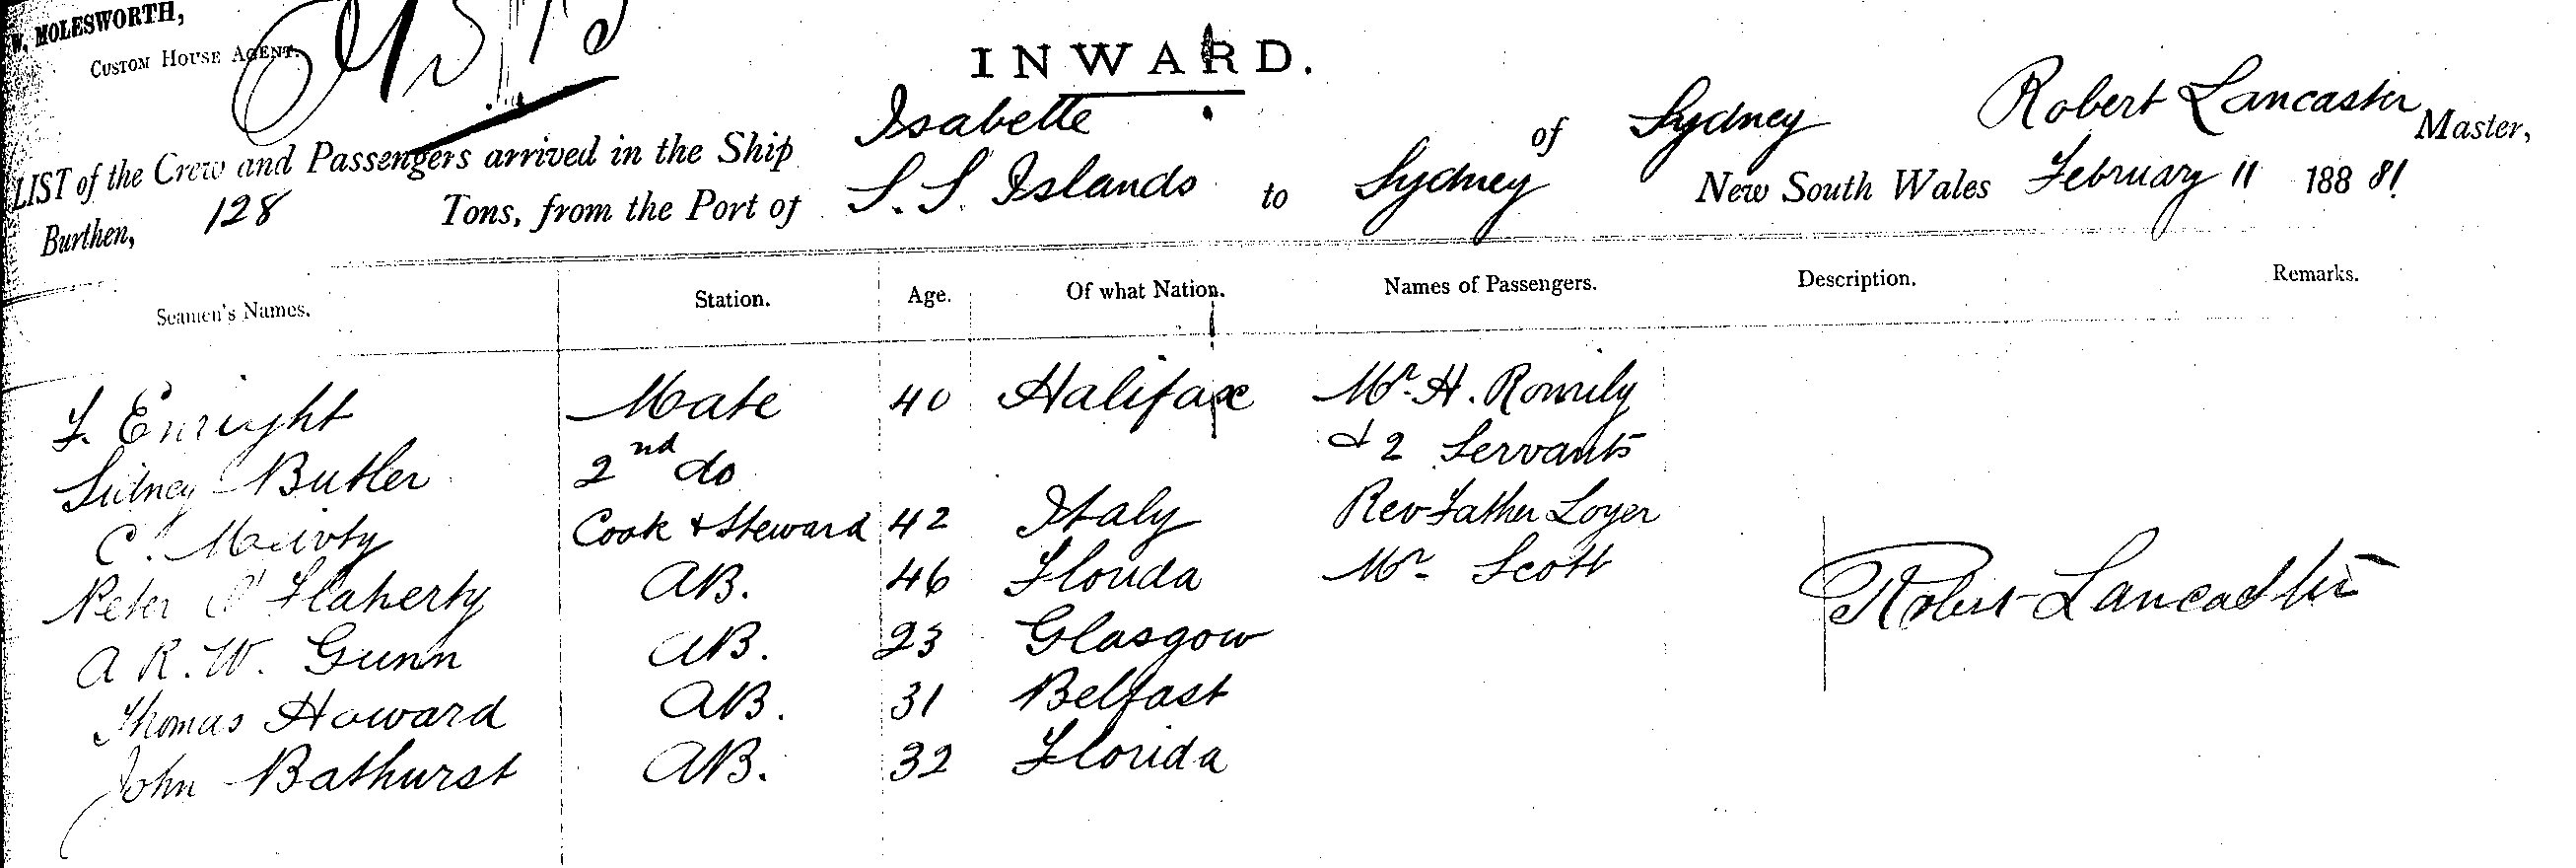 W. MOLESWORTH,
CUSTOM HOUSE AGENT.
INWARD.
LIST of the Crew and Passengers arrived in the Ship Isabelle of Sydney Robert Lancaster Master,
Burthen, 128 Tons, from the Port of S. S. Islands to Sydney New South Wales February 11 188 81
Seamen's Names. Station. Age. Of what Nation. Names of Passengers. Description. Remarks.
Enright Mate 40 Halifax Mr. H. Romily
& 2 Servants
Sidney Butler 2nd do
C. Cook & Steward 42 Italy Rev Father Loyer
Peter O'Flaherty AB. 46 Florida Mr. Scott
Robert Lancaster
A R. W. Gunn AB. 23 Glasgow
Thomas Howard AB. 31 Belfast
John Bathurst AB. 32 Florida